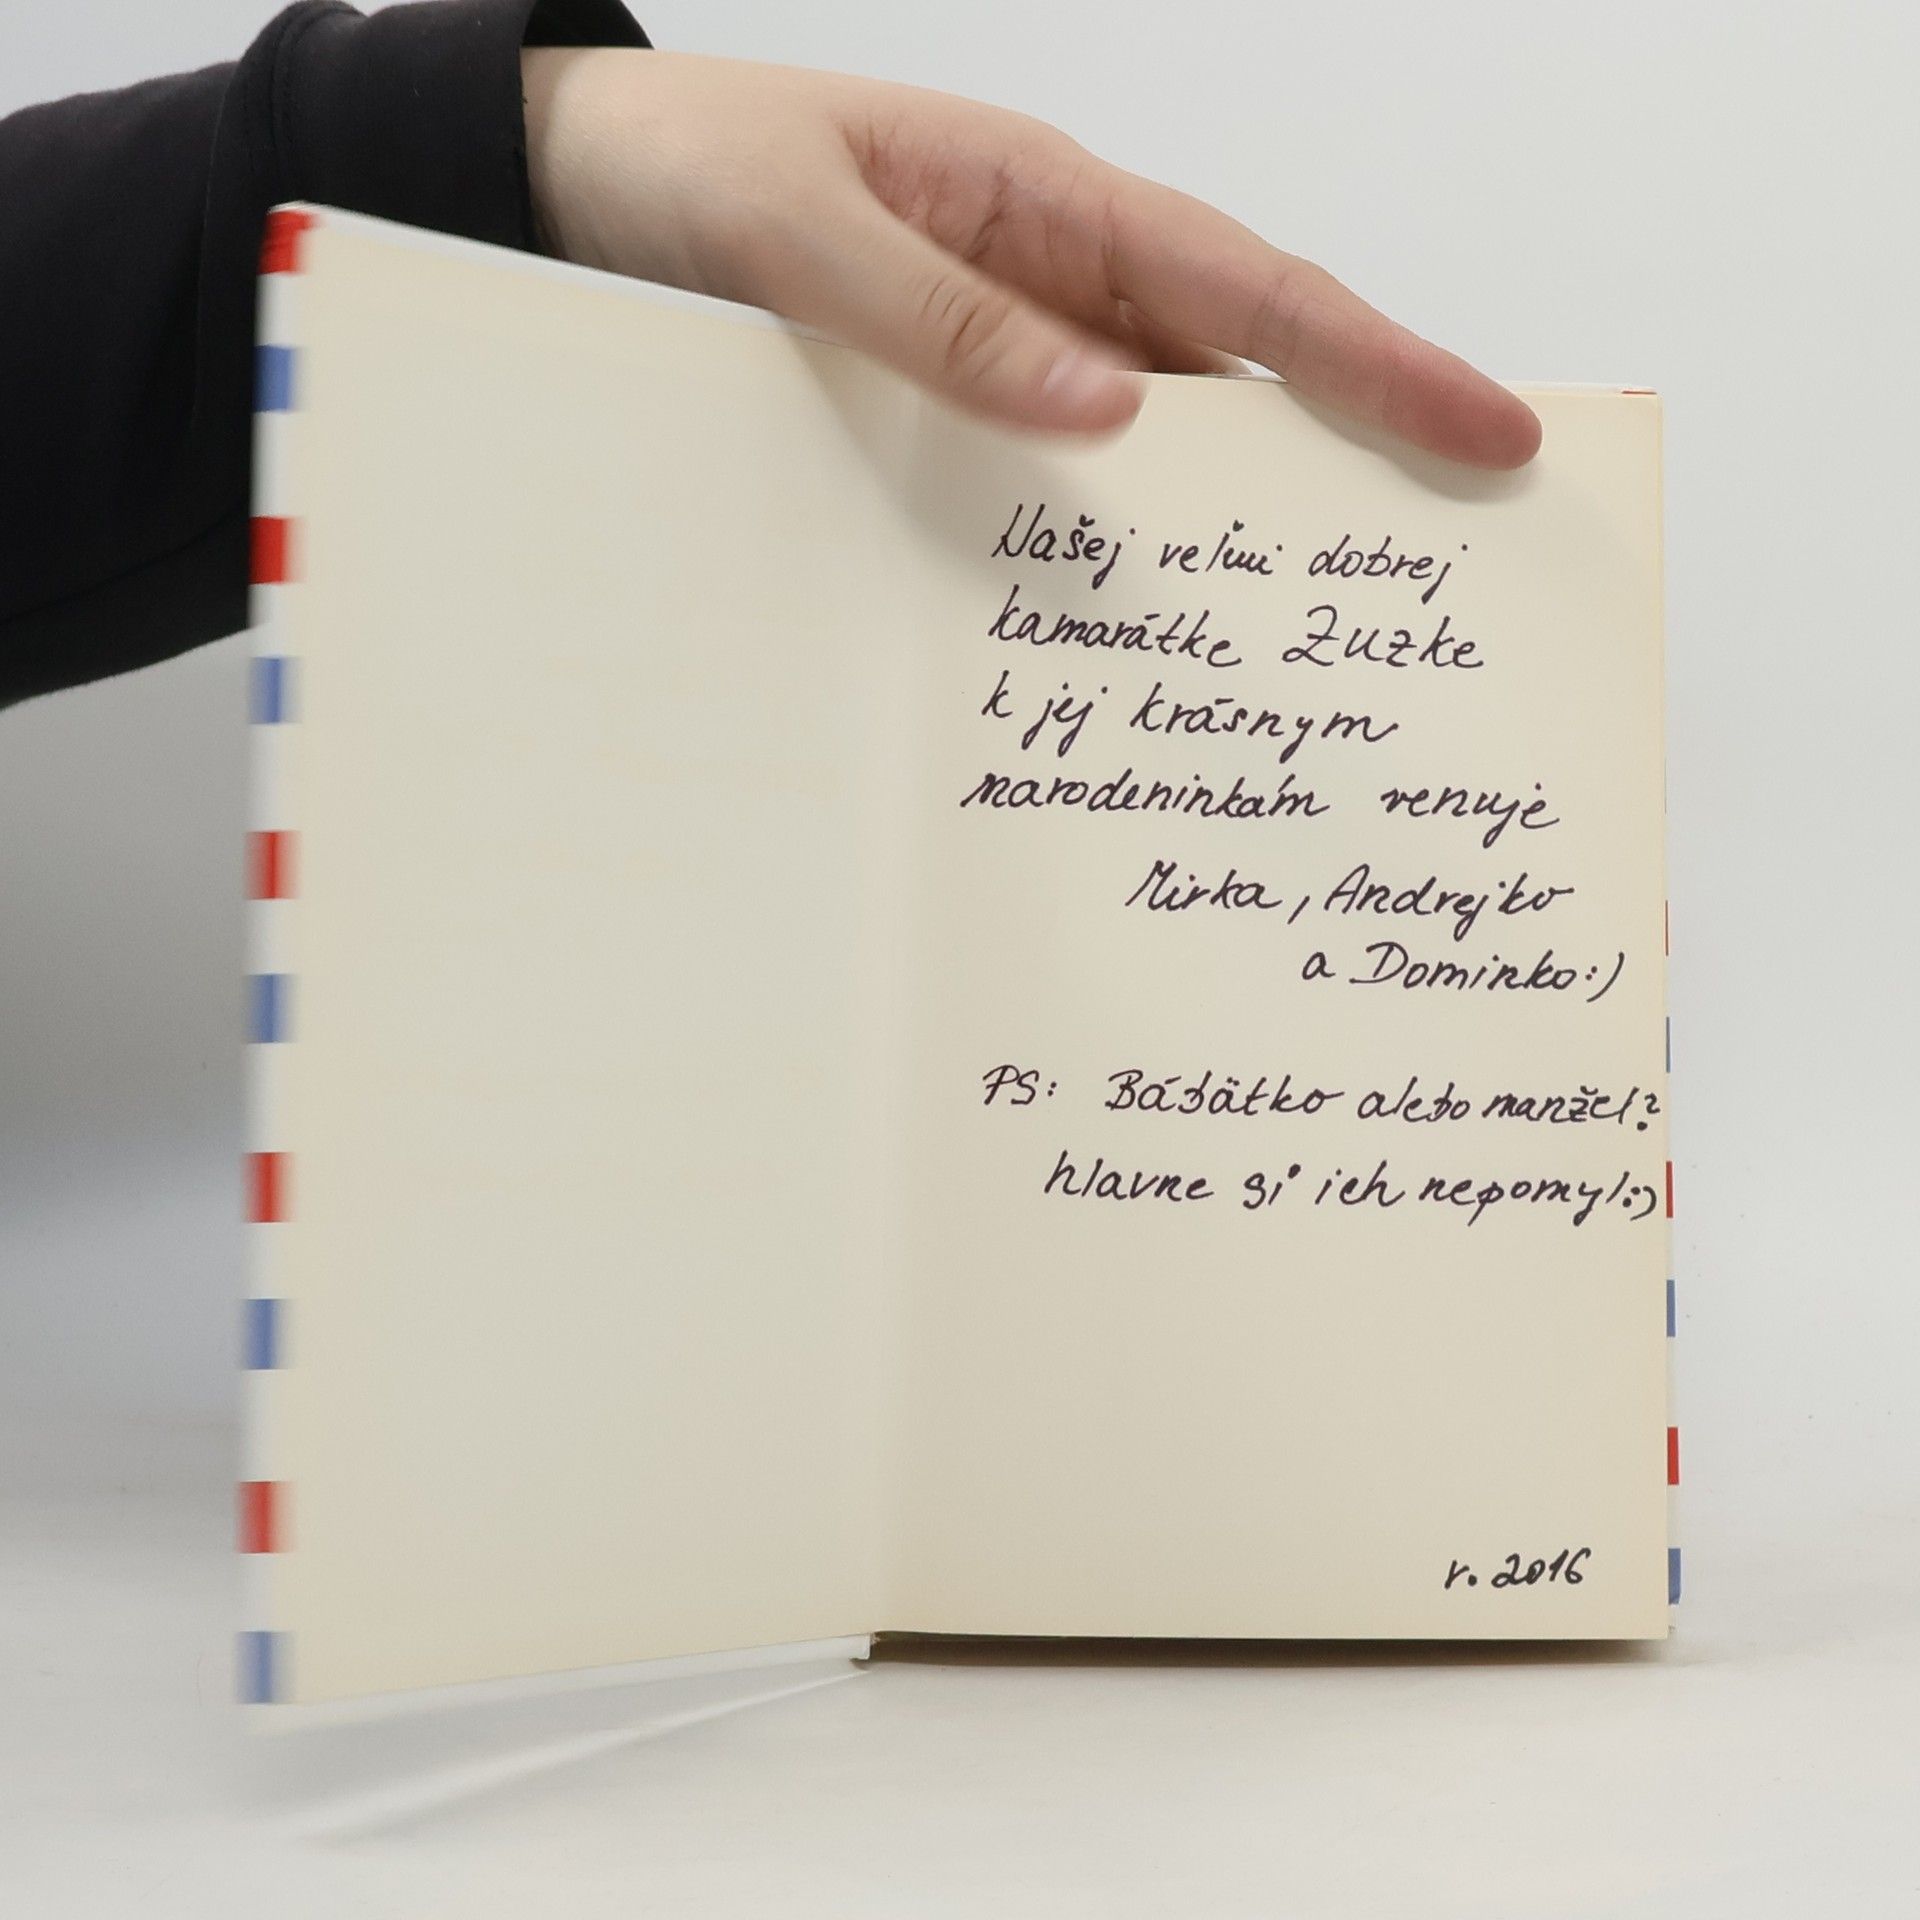 Našej veľmi dobrej
kamarátke Zuzke
k jej krásnym
narodeninkám venuje
Mirka, Andrejko
a Dominko:)
PS: Bábätko alebo manžel?
hlavne si ich nepomýľ:)
r. 2016